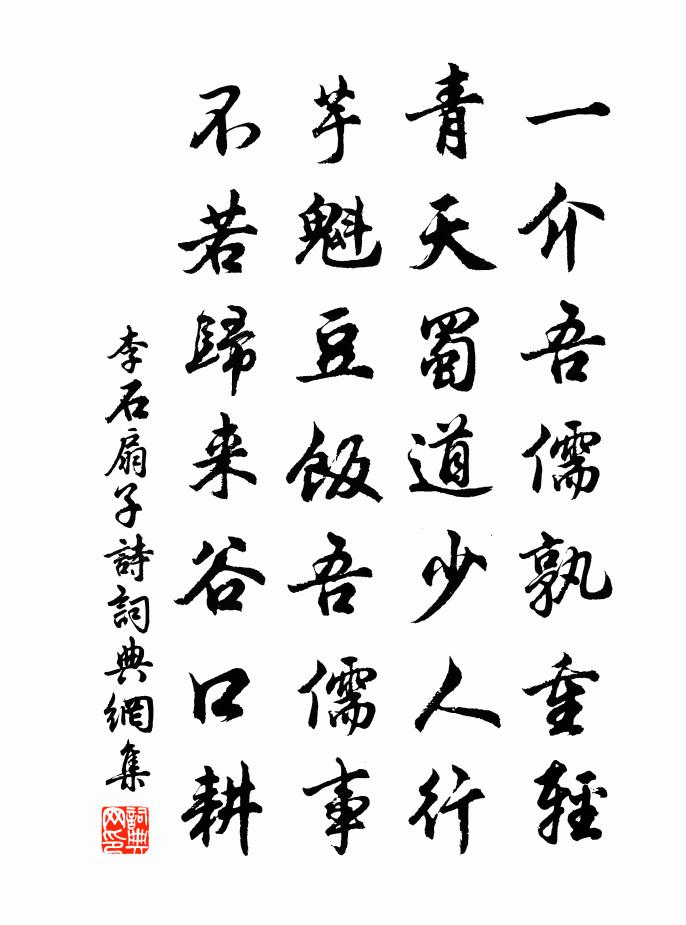 一介吾儒孰重輕
青天蜀道少人行
芋魁豆飯吾儒事
不若歸来谷口耕
李石扇子詩詞典網集
詞典网印